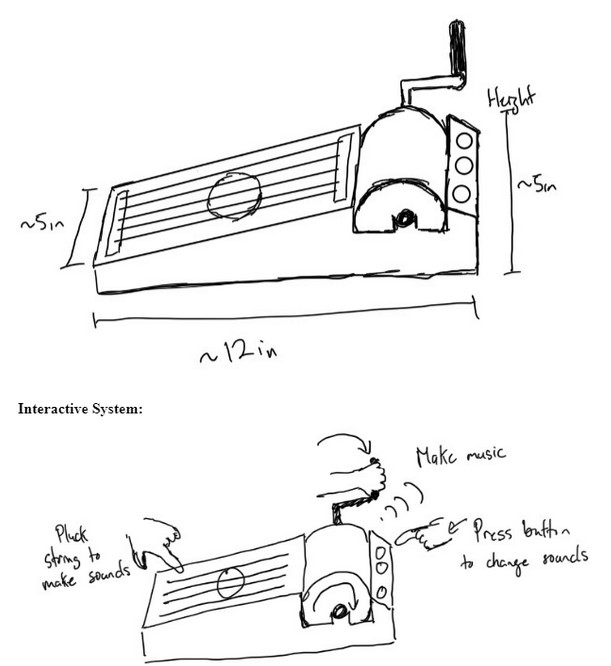 Height
~5in
~5in
~12in
Interactive System:
Make music
Pluck
string to
make sounds
Press button
to change sounds